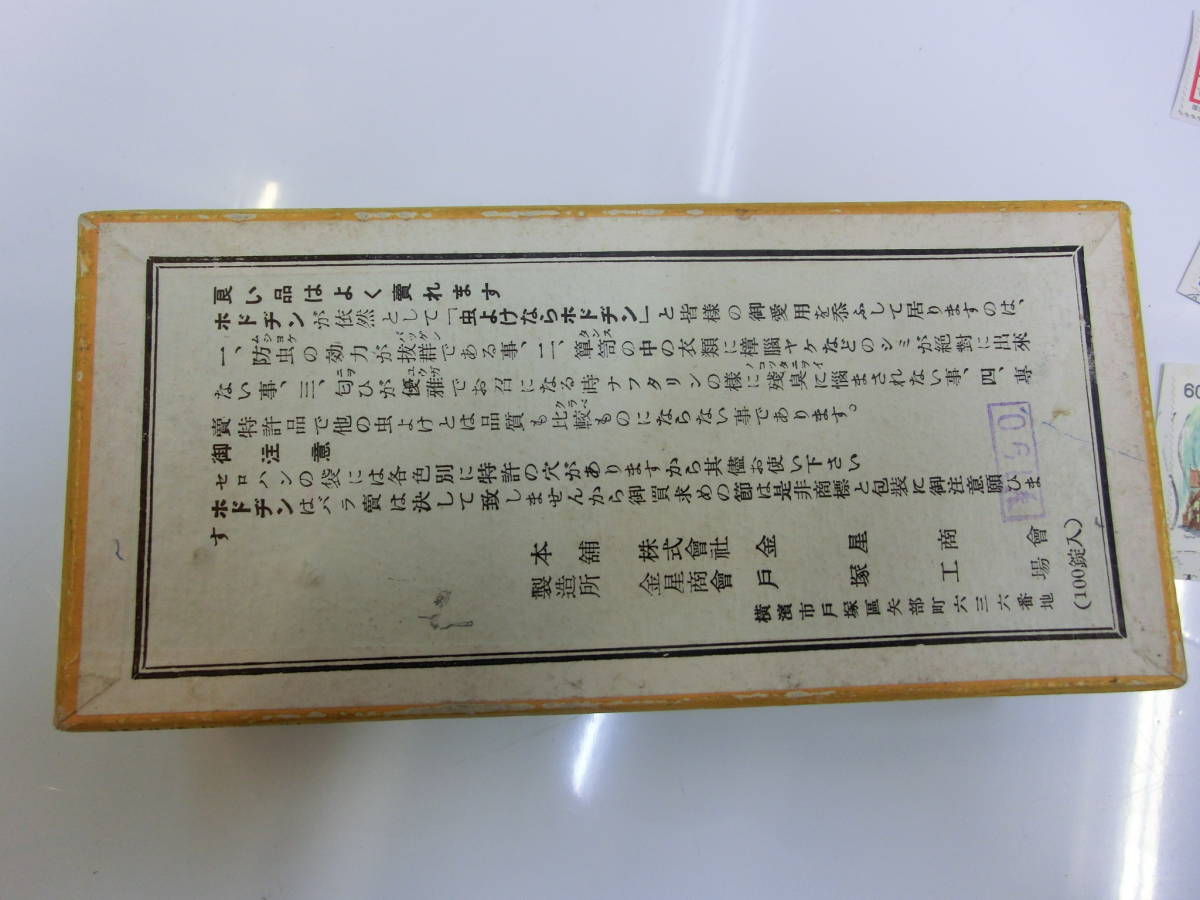 良い品はよく賣れます
ホドヂンが依然として「虫よけならホドヂン」と皆様の御愛用を忝ふして居りますのは、
一、防虫の効力が抜群である事、二、簞笥の中の衣類に樟腦ヤケなどのシミが絕對に出來
ない事、三、匂ひが優雅でお召になる時ナフタリンの様に殘臭に惱まされない事、四、專
賣特許品で他の虫よけとは品質も比較ものにならない事であります。
御注意
セロハンの袋には各色別に特許の穴がありますから其儘お使い下さい
ホドヂンはバラ賣は決して致しませんから御買求めの節は是非商標と包装に御注意願ひま
す
本舗 株式會社 金星商會
製造所 金星商會 戶塚工場
橫濱市戶塚區矢部町六三六番地
(100錠入)
60